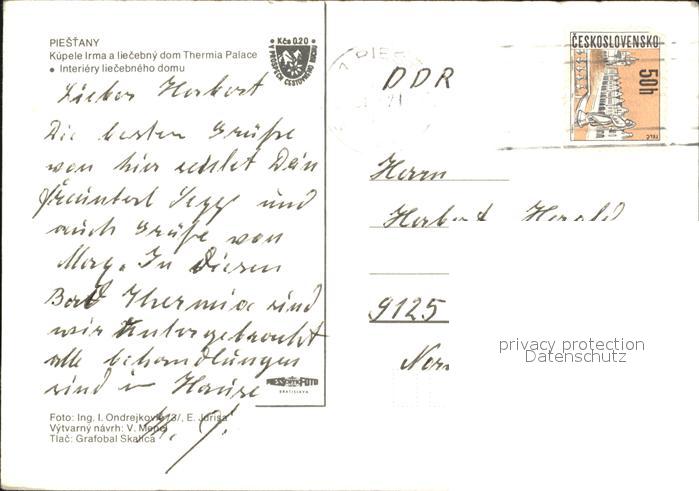 PIEŠŤANY
Kúpele Irma a liečebný dom Thermia Palace
• Interiéry liečebného domu
Kčs 0.20
ČESKOSLOVENSKO
50h
TELČ
DDR
Lieber Herbert
Die besten Grüße
von hier sendet Dein
Freund Sepp und
auch Grüße von
In diesen
Bad Thermia sind
wir untergebracht
alle behandlungen
sind in Hause
Herrn
Herbert Herold
9125
PRESSFOTO
BRATISLAVA
Foto: Ing. I. Ondrejkovič /3/, E. Jurisa
Výtvarný návrh: V. Mencl
Tlač: Grafobal Skalica
privacy protection
Datenschutz